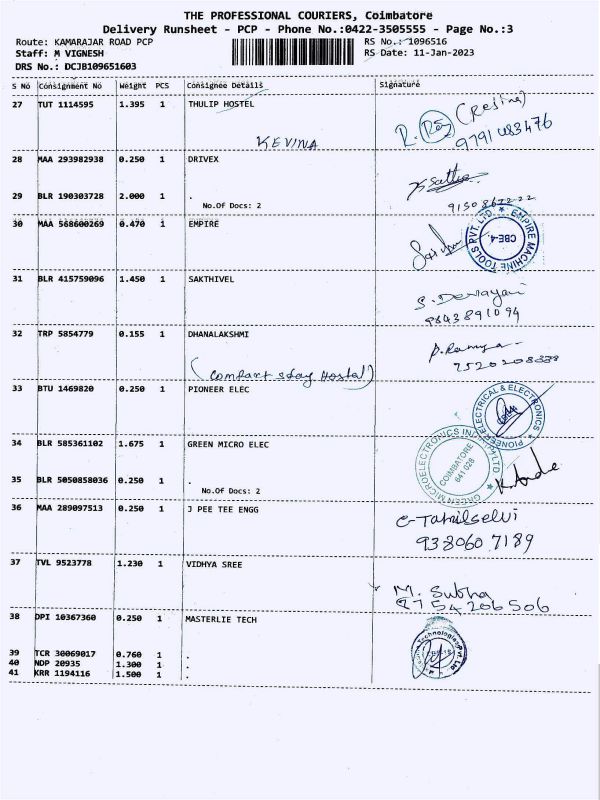 THE PROFESSIONAL COURIERS, Coimbatore
Delivery Runsheet - PCP - Phone No.:0422-3505555 - Page No.:3
Route: KAMARAJAR ROAD PCP
RS No.: 1096516
Staff: M VIGNESH
RS Date: 11-Jan-2023
DRS No.: DCJB109651603
S No Consignment No Weight PCS Consignee Details Signature
27 TUT 1114595 1.395 1 THULIP HOSTEL
(Resina)
KEVINA
9791083476
28 MAA 293982938 0.250 1 DRIVEX
29 BLR 190303728 2.000 1 .
No.Of Docs: 2
30 MAA 568600269 0.470 1 EMPIRE
EMPIRE MACHINE TOOLS PVT. LTD.
CBE-4
31 BLR 415759096 1.450 1 SAKTHIVEL
S. Devayani
9843891094
32 TRP 5854779 0.155 1 DHANALAKSHMI
P. Ramya
7520208338
(Compact stay Hostal)
33 BTU 1469820 0.250 1 PIONEER ELEC
PIONEER ELECTRICAL & ELECTRONICS
34 BLR 585361102 1.675 1 GREEN MICRO ELEC
COIMBATORE
641 028
35 BLR 5050858036 0.250 1 .
No.Of Docs: 2
36 MAA 289097513 0.250 1 J PEE TEE ENGG
C-Tamilselvi
9380607189
37 TVL 9523778 1.230 1 VIDHYA SREE
M. Subha
9754206506
38 DPI 10367360 0.250 1 MASTERLIE TECH
39 TCR 30069017 0.760 1 .
40 NDP 20935 1.300 1 .
41 KRR 1194116 1.500 1 .